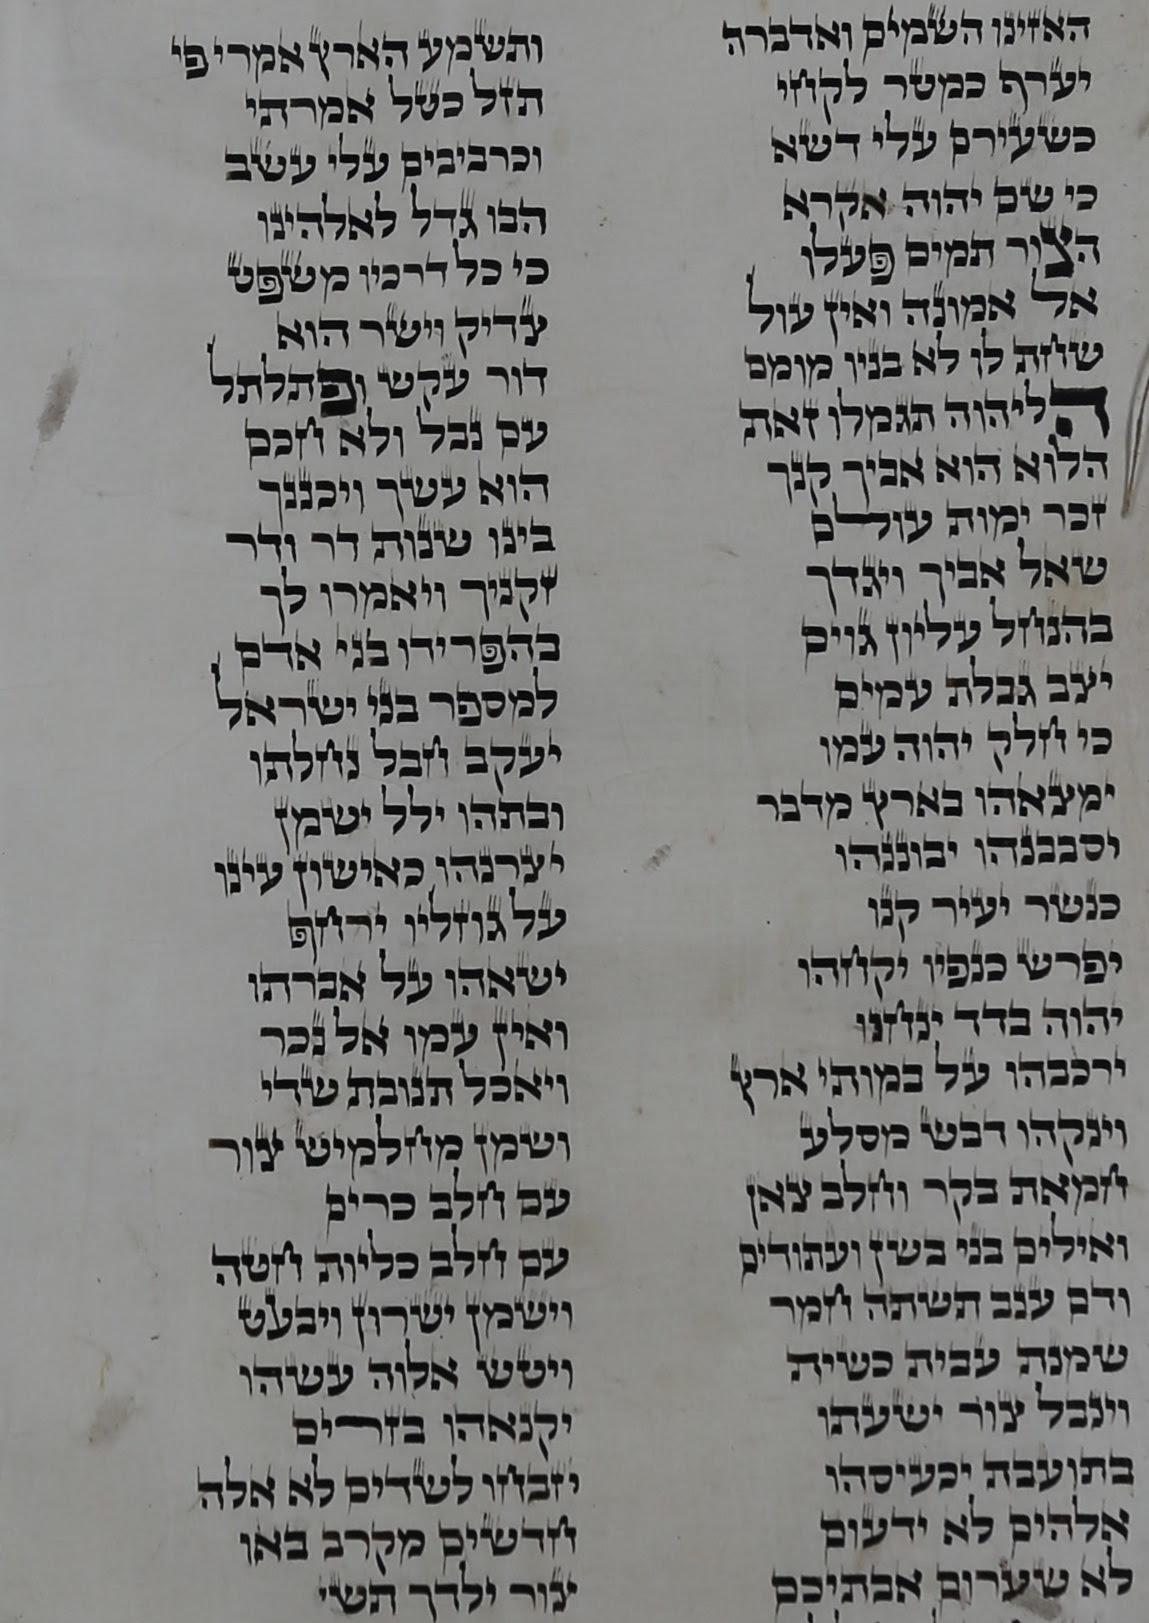 האזינו השמים ואדברה ותשמע הארץ אמרי פי
יערף כמטר לקחי תזל כטל אמרתי
כשעירם עלי דשא וכרביבים עלי עשב
כי שם יהוה אקרא הבו גדל לאלהינו
הצור תמים פעלו כי כל דרכיו משפט
אל אמונה ואין עול צדיק וישר הוא
שחת לו לא בניו מומם דור עקש ופתלתל
ה ליהוה תגמלו זאת עם נבל ולא חכם
הלוא הוא אביך קנך הוא עשך ויכננך
זכר ימות עולם בינו שנות דר ודר
שאל אביך ויגדך זקניך ויאמרו לך
בהנחל עליון גוים בהפרידו בני אדם
יצב גבלת עמים למספר בני ישראל
כי חלק יהוה עמו יעקב חבל נחלתו
ימצאהו בארץ מדבר ובתהו ילל ישמן
יסבבנהו יבוננהו יצרנהו כאישון עינו
כנשר יעיר קנו על גוזליו ירחף
יפרש כנפיו יקחהו ישאהו על אברתו
יהוה בדד ינחנו ואין עמו אל נכר
ירכבהו על במותי ארץ ויאכל תנובת שדי
וינקהו דבש מסלע ושמן מחלמיש צור
חמאת בקר וחלב צאן עם חלב כרים
ואילים בני בשן ועתודים עם חלב כליות חטה
ודם ענב תשתה חמר וישמן ישרון ויבעט
שמנת עבית כשית ויטש אלוה עשהו
וינבל צור ישעתו יקנאהו בזרים
בתועבת יכעיסהו יזבחו לשדים לא אלה
אלהים לא ידעום חדשים מקרב באו
לא שערום אבתיכם צור ילדך תשי